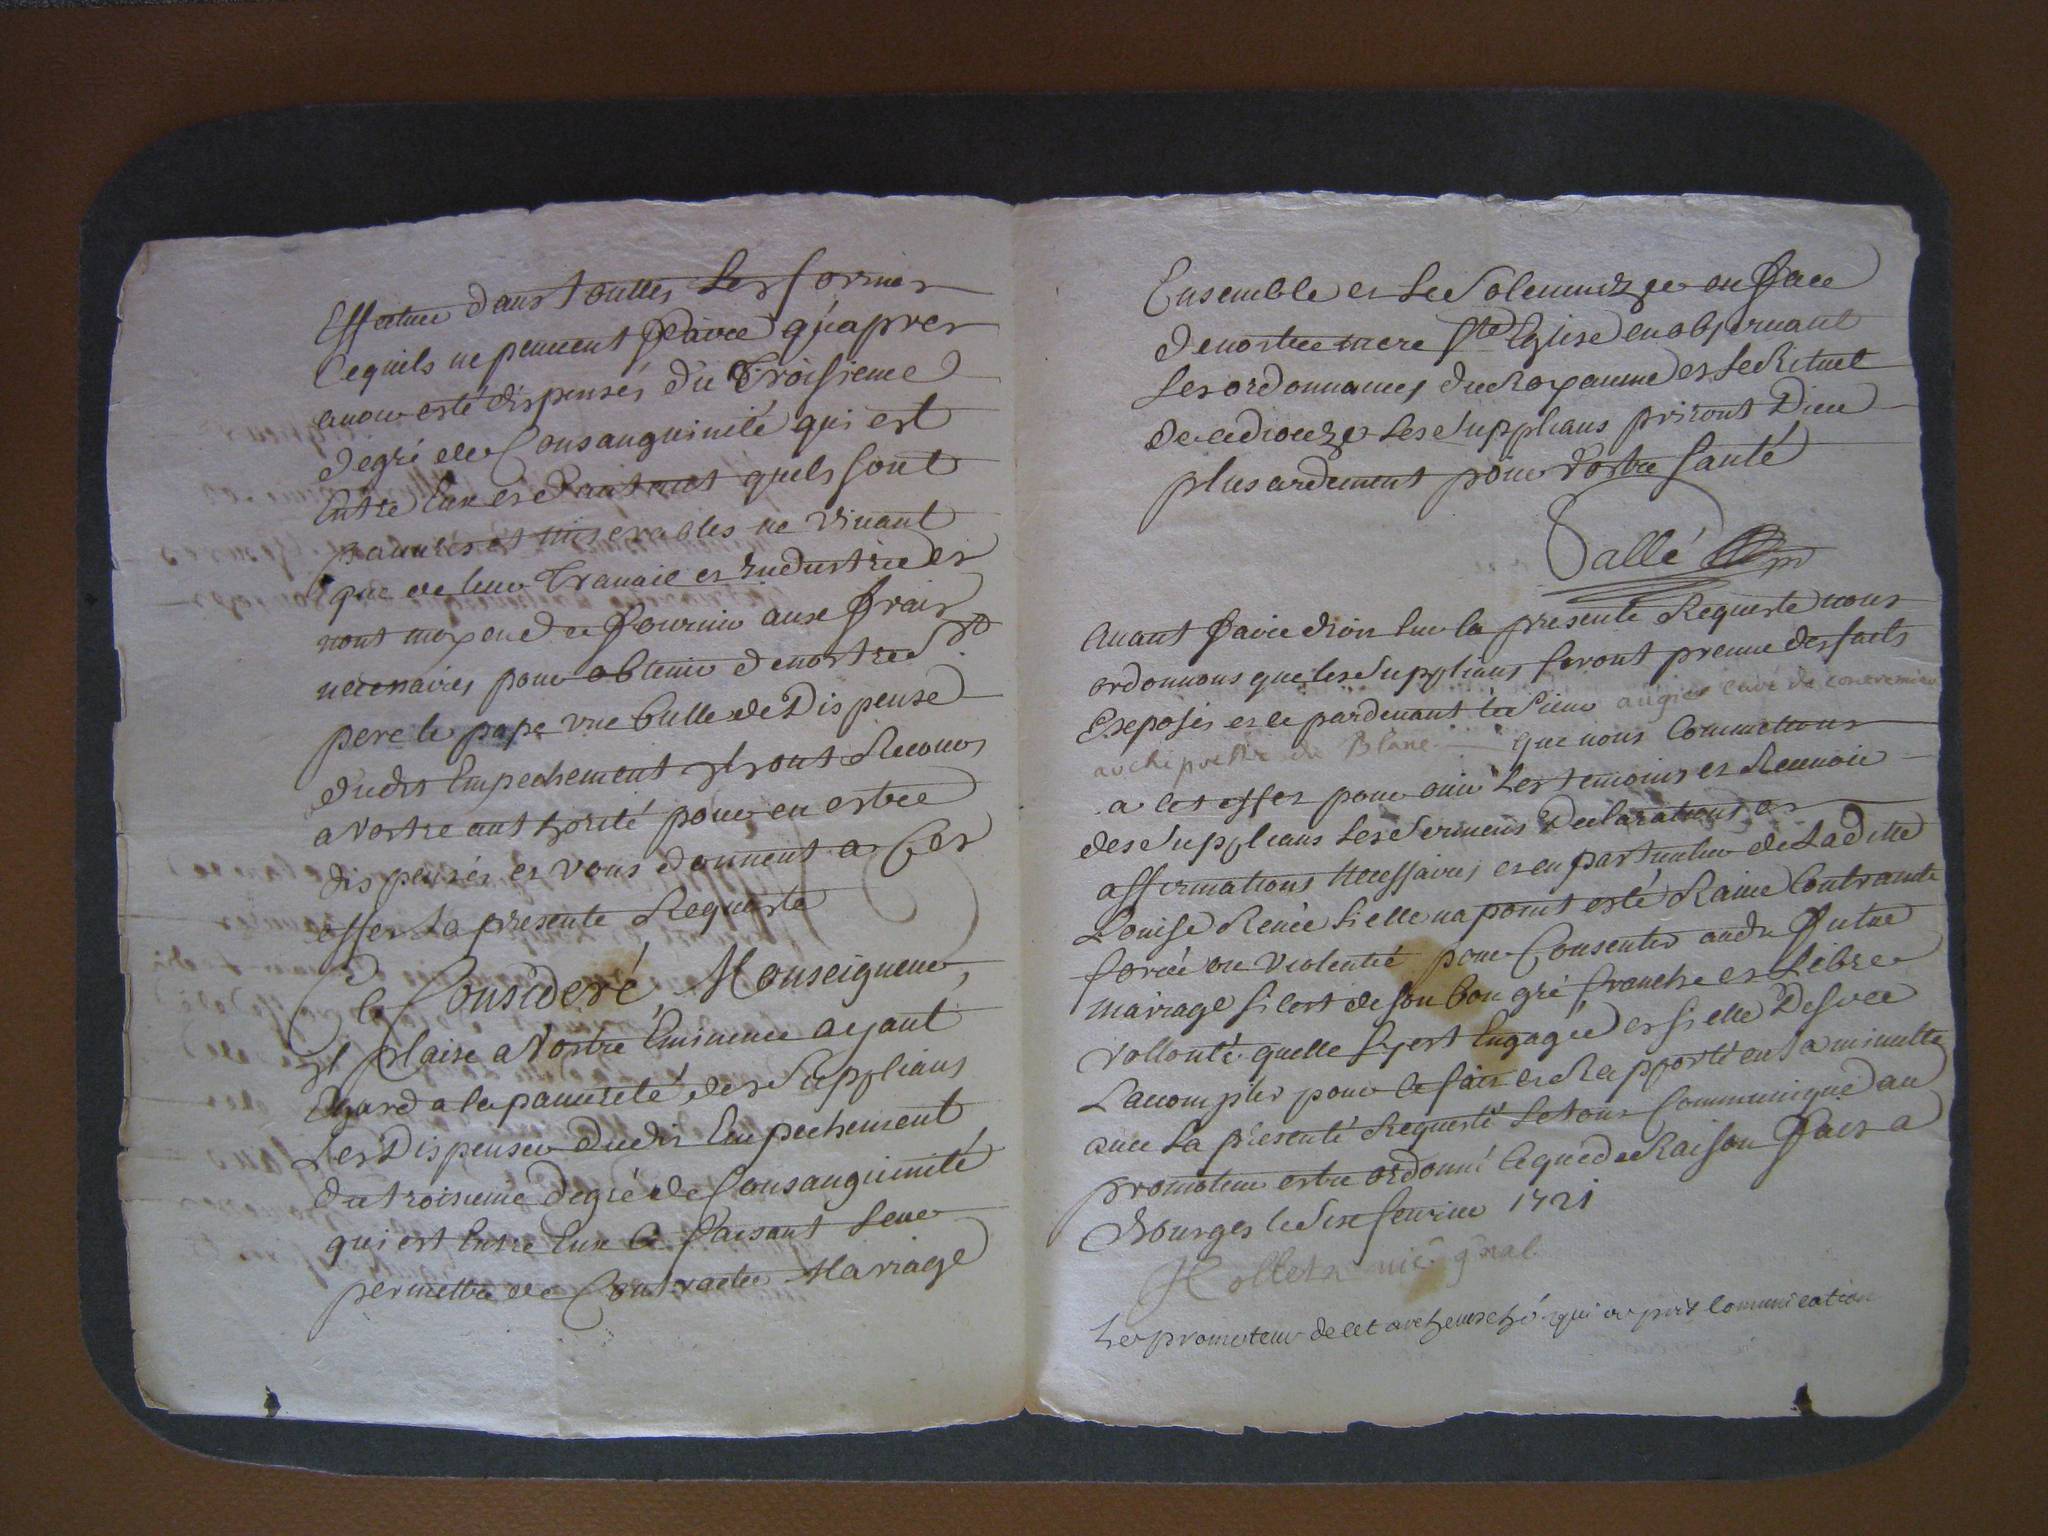 Effectuer dans touttes les formes
Ce quils ne peuvent faire qu'apres
avoir esté dispensés du troisieme
degré de Consanguinité qui est
Entre Eux et dautant quils sont
pauvres et miserables ne vivant
que de leur travail et industrie et
nont moyen de fournir aux frais
necessaires pour obtenir de nostre St
pere le pape une bulle de Dispense
dudit Empechement ils ont Recours
a Vostre authorité pour en estre
dispensés et vous donnent a Cet
effet la presente Requeste
Ce Consideré, Monseigneur,
Il plaise a Vostre Eminence ayant
Egard a la pauvreté des Supplians
les Dispenser dudit Empechement
du troisieme degré de Consanguinité
qui est Entre Eux Ce faisant leur
permettre de Contracter Mariage
Ensemble et le Solemnizer en face
de nostre mere Ste Eglise en observant
les ordonnances du Royaume et le Rituel
de ce dioceze les Supplians priront Dieu
plus ardement pour Vostre santé
Sallé
Avant faire droit sur la presente Requeste nous
ordonnons que les Supplians feront preuve des faits
Exposés et ce pardevant le Sieur augier curé de concremier
archiprestre du Blanc que nous Commettons
a cet effet pour ouir les temoins et Recevoir
des Supplians les Sermens Declarations et
affirmations Necessaires et en particulier de Ladite
Louise Renée si elle na point esté Ravie Contrainte
forcée ou violentée pour Consentir audit futur
mariage si cest de son bon gré franche et Libre
vollonté quelle s'y est Engagée et si elle Desire
Laccomplir pour ce fait et Rapporté en la minutte
avec la presente Requeste le tout Communiqué au
promoteur estre ordonné Ce que de Raison fait a
Bourges le Six fevrier 1721
vic. g'nal
Le promoteur de cet archevesché qui a pris communication